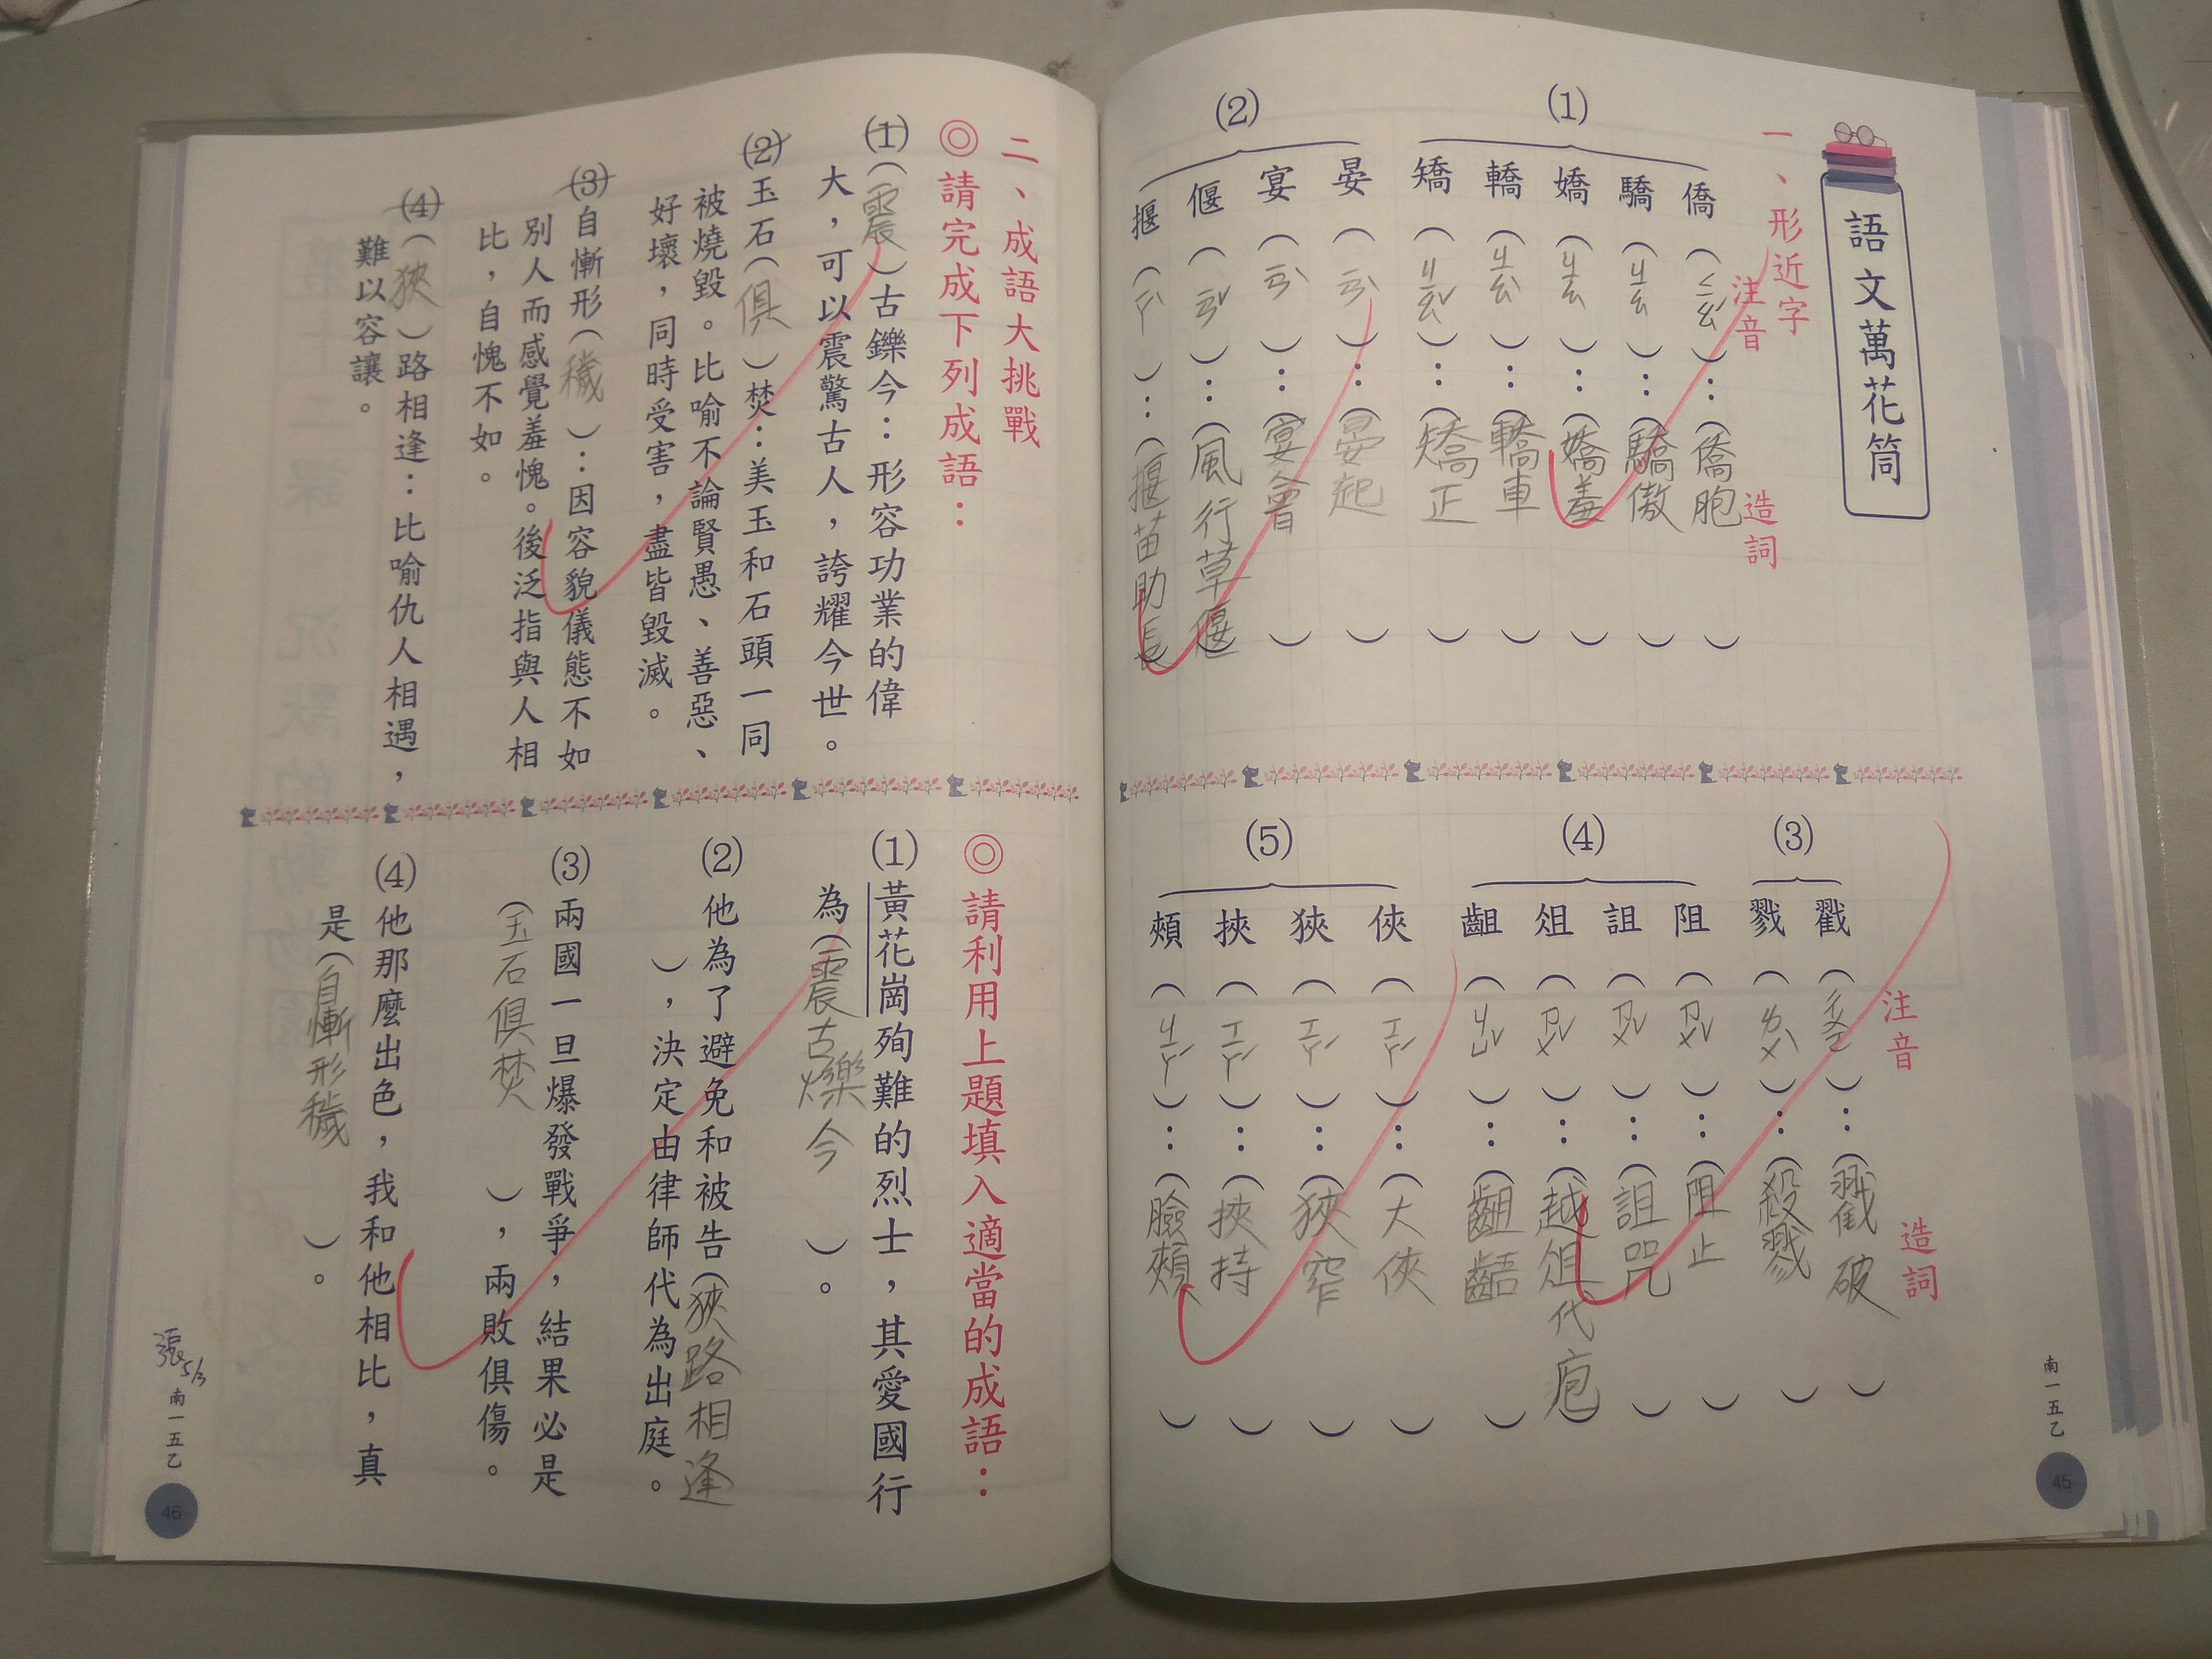 語文萬花筒
一、形近字
注音
造詞
(1)
僑（ㄑㄧㄠˊ）：（僑胞）
驕（ㄐㄧㄠ）：（驕傲）
嬌（ㄐㄧㄠ）：（嬌羞）
轎（ㄐㄧㄠˋ）：（轎車）
矯（ㄐㄧㄠˇ）：（矯正）
(2)
晏（ㄧㄢˋ）：（晏起）
宴（ㄧㄢˋ）：（宴會）
偃（ㄧㄢˇ）：（風行草偃）
揠（ㄧㄚˋ）：（揠苗助長）
注音
造詞
(3)
戳（ㄔㄨㄛ）：（戳破）
戮（ㄌㄨˋ）：（殺戮）
(4)
阻（ㄗㄨˇ）：（阻止）
詛（ㄗㄨˇ）：（詛咒）
俎（ㄗㄨˇ）：（越俎代庖）
齟（ㄐㄩˇ）：（齟齬）
(5)
俠（ㄒㄧㄚˊ）：（大俠）
狹（ㄒㄧㄚˊ）：（狹窄）
挾（ㄒㄧㄚˊ）：（挾持）
頰（ㄐㄧㄚˊ）：（臉頰）
南一五乙
45
二、成語大挑戰
◎請完成下列成語：
(1)（震）古鑠今：形容功業的偉
大，可以震驚古人，誇耀今世。
(2)玉石（俱）焚：美玉和石頭一同
被燒毀。比喻不論賢愚、善惡、
好壞，同時受害，盡皆毀滅。
(3)自慚形（穢）：因容貌儀態不如
別人而感覺羞愧。後泛指與人相
比，自愧不如。
(4)（狹）路相逢：比喻仇人相遇，
難以容讓。
◎請利用上題填入適當的成語：
(1)黃花崗殉難的烈士，其愛國行
為（震古爍今）。
(2)他為了避免和被告（狹路相逢
），決定由律師代為出庭。
(3)兩國一旦爆發戰爭，結果必是
（玉石俱焚），兩敗俱傷。
(4)他那麼出色，我和他相比，真
是（自慚形穢）。
張5/3
南一五乙
46